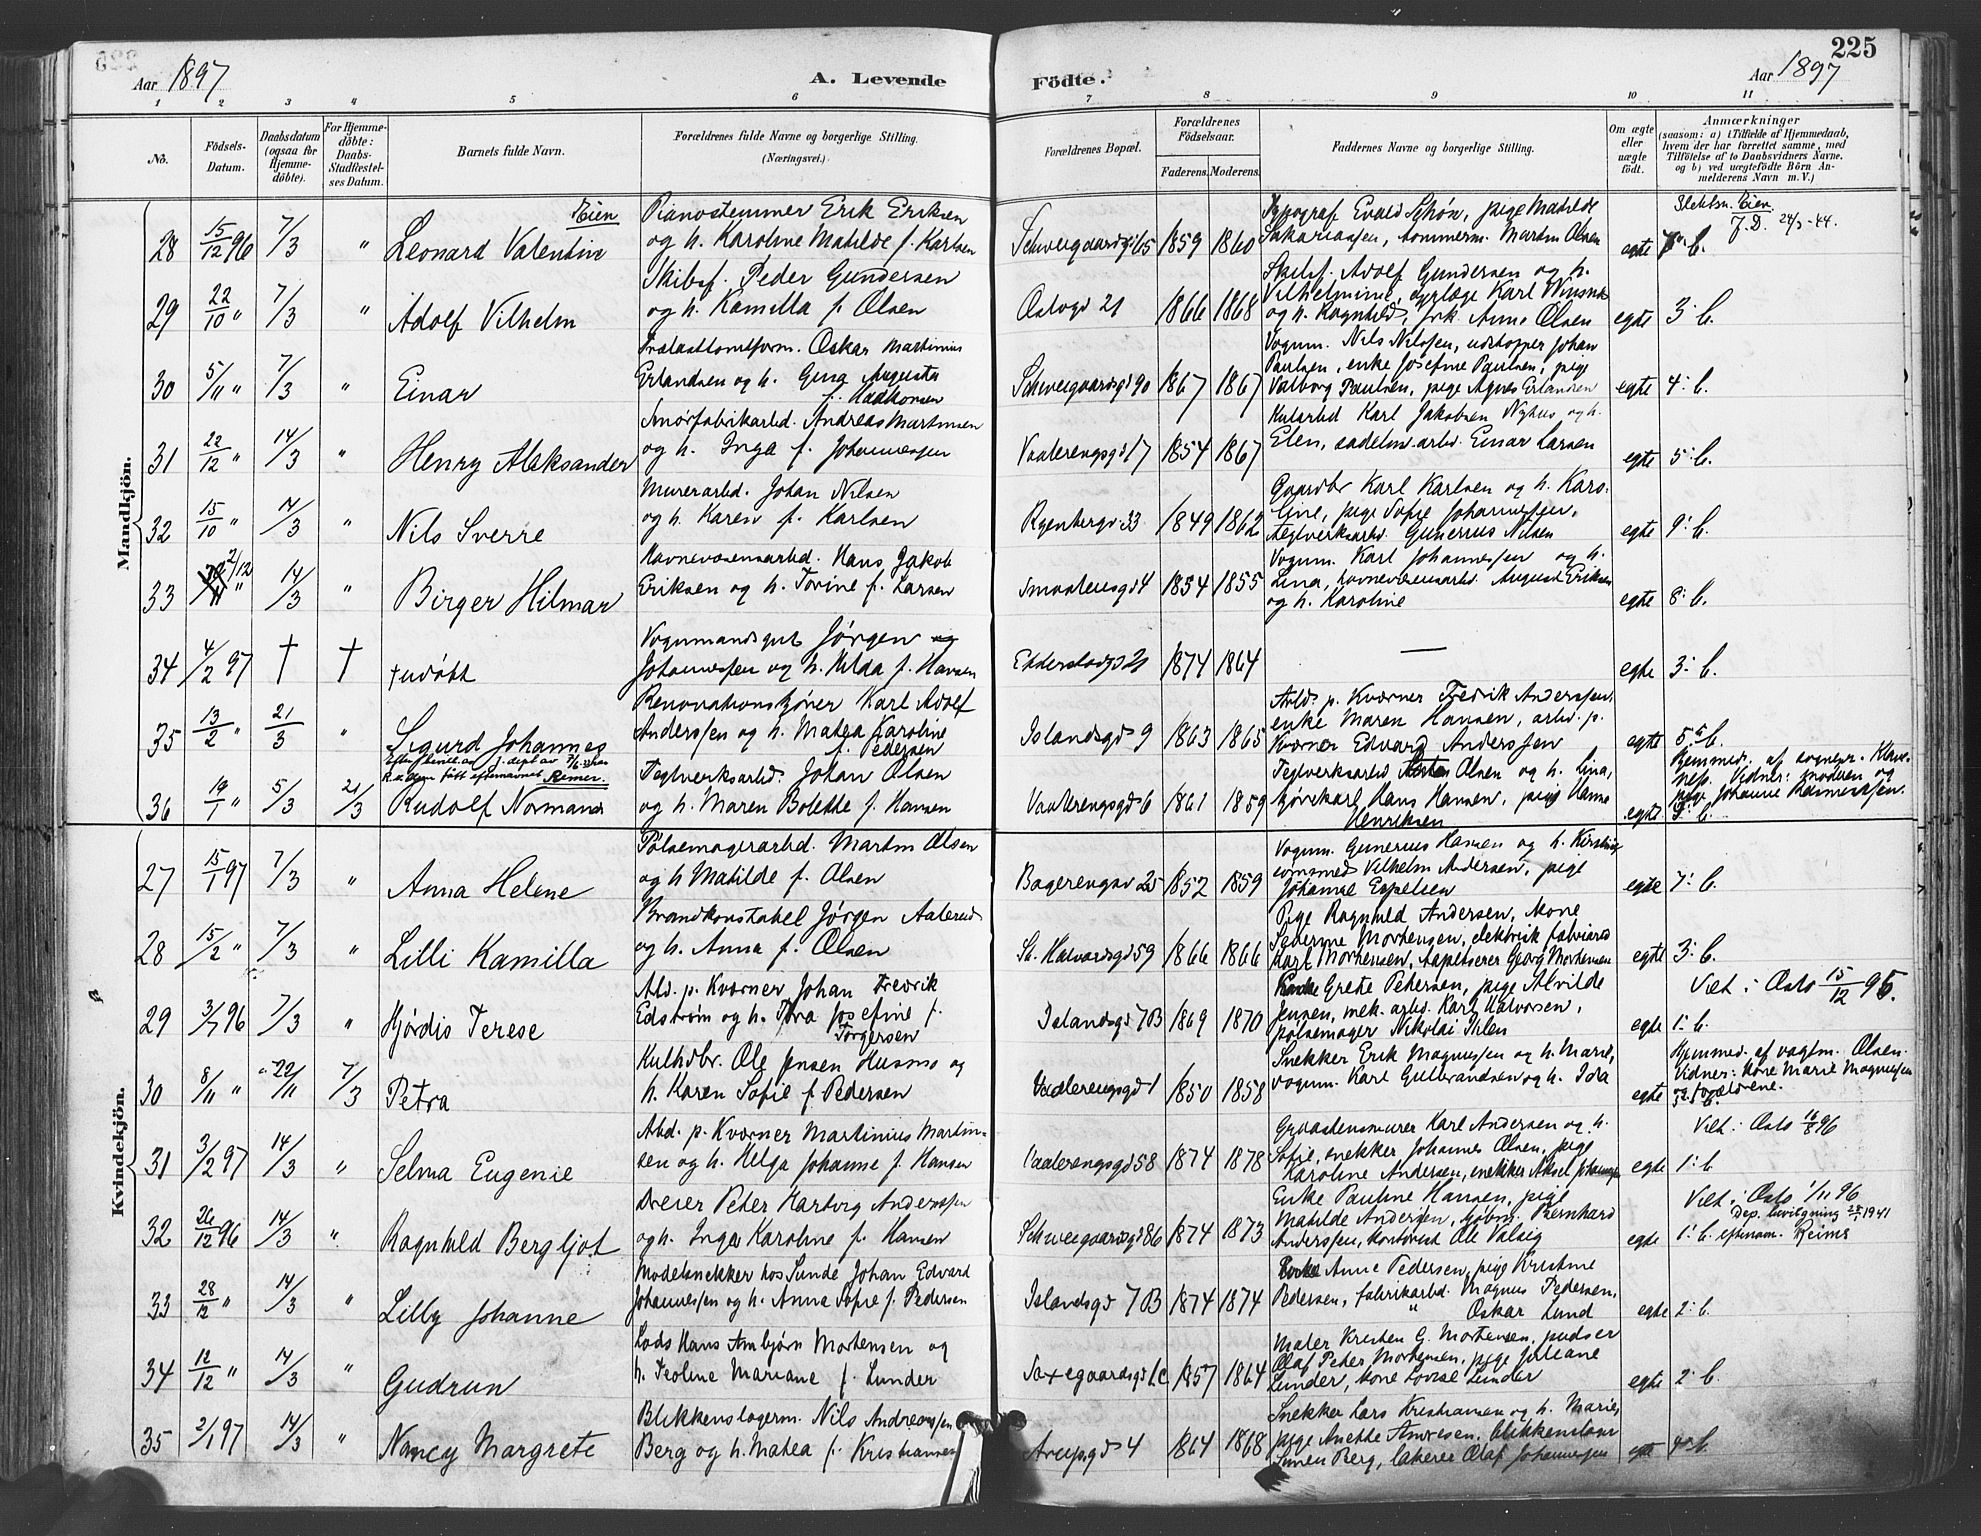 225
Aar 1897
A. Levende
Födte.
Aar 1897
1 2 3 4 5 6 7 8 9 10 11
No.
Födsels-
Datum.
Daabsdatum
(ogsaa for
Hjemme-
döbte).
For Hjemme-
döbte:
Daabs-
Stadfæstel-
ses Datum.
Barnets fulde Navn.
Forældrenes fulde Navne og borgerlige Stilling.
(Næringsvei.)
Forældrenes Bopæl.
Forældrenes
Födselsaar.
Faderens. Moderens.
Faddernes Navne og borgerlige Stilling.
Om ægte
eller
uægte
födt.
Anmærkninger
(saasom: a) i Tilfælde af Hjemmedaab,
hvem der har forrettet samme, med
Tilföielse af to Daabsvidners Navne.
og b) ved uægtefödte Börn An-
melderens Navn m. V.)
Mandkjön.
28 15/12 96 7/3 " Leonard Valentin
Eien
Pianostemmer Erik Eriksen
og h. Karoline Matilde f. Karlsen
Schweigaardsgd 65 1859 1860
Typograf Evald Schön, pige Matilde
Sakariassen, tommerm. Martin Olsen
egte
Slektsn. Eien
J.D. 24/3-44.
29 22/10 " 7/3 " Adolf Vilhelm
Skibsf. Peder Gundersen
og h. Kamilla f. Olsen
Oslogd 21 1866 1868
Skibsf. Adolf Gundersen og h.
Vilhelmine, Karl
og h. Ragnhild, frk. Anne Olsen
egte 3: b.
30 5/11 " 7/3 " Einar
Oskar Martinius
Erlandsen og h. Gina Augusta
f. Haakonsen
Schweigaardsgd 90 1867 1867
Vognm. Nils Nilssen, udstopper Johan
Paulsen, enke Josefine Paulsen, pige
Valborg Paulsen, pige Agnes Erlandsen
egte 4: b.
31 22/12 " 14/3 " Henry Aleksander
Smörfabrikarbd. Andreas Martinsen
og h. Inga f. Johannessen
Vaalerengsgd 17 1854 1867
Kularbd Karl Jakobsen Nyhus og h.
Elen, sadelm.arbd. Einar Larsen
egte 5: b.
32 15/10 " 14/3 " Nils Sverre
Murerarbd. Johan Nilsen
og h. Karen f. Karlsen
Ryenbergv 33 1849 1862
Gaardbr Karl Karlsen og h. Karo-
line, pige Sofie Johannessen,
teglverksarbd. Gunerius Nilsen
egte 9: b.
33 2/12 " 14/3 " Birger Hilmar
Havnevæsensarbd. Hans Jakob
Eriksen og h. Torine f. Larsen
Smaalensgd 4 1854 1855
Vognm. Karl Johannessen og h.
Lina, havnevesensarbd. August Eriksen
og h. Karoline
egte 8: b.
34 4/2 97 † † † udöbt
Vognmandsgut Jörgen og
Johannessen og h. Hilda f. Hansen
1874 1864
—
egte 3: b.
35 13/2 " 21/3 " Sigurd Johannes
Renovationskjörer Karl Adolf
Anderssen og h. Matea Karoline
f. Pedersen
Islandsgd 9 1863 1865
Arbd. p. Kværner Fredrik Anderssen,
enke Maren Hansen, arbd. p.
Kværner Edvard Anderssen
egte 5: b.
36 19/1 " 5/3 21/3 Rudolf Normann
Reimer.
Teglverksarbd. Johan Olsen
og h. Maren Bolette f. Hansen
Vaalerengsgd 6 1861 1859
Teglverksarbd Olsen og h. Lina,
Hans Hansen, pige Hanna
Henriksen
egte
Hjemmed. af sognepr. Klave-
ness. Vidner: moderen og
Johanne Rasmussen.
Kvindekjön.
27 15/1 97 7/3 " Anna Helene
Pölsemagerarbd. Martin Olsen
og h Matilde f. Olsen
25 1852 1859
Vognm. Gunerius Hansen og h. Kirstine
Vilhelm Andersen, pige
Johanne Espelsen
egte 7: b.
28 15/2 " 7/3 " Lilli Kamilla
Brandkonstabel Jörgen Aaserud
og h. Anna f. Olsen
St. Halvardsgd 59 1866 1866
Pige Ragnhild Andersen, kone
Severine Mortensen,
Karl Mortensen, tapetserer Georg Mortensen
egte 3: b.
29 3/7 96 7/3 " Hjördis Terese
Abd. p. Kværner Johan Fredrik
Edström og h. Tora Josefine f.
Torgersen
Islandsgd 7B 1869 1870
Enke Grete Petersen, pige Alvilde
Jensen, mek. arbd. Karl Halvorsen,
pölsemager Nikolai Ihlen
egte 1: b.
Viet i Oslo 15/12 95.
30 8/11 " 22/11 7/3 Petra
Kulhdbr. Ole Jensen Husmo og
h. Karen Sofie f. Pedersen
Vaalerengsgd 1 1850 1858
Snekker Erik Magnussen og h. Marie,
vognm. Karl Gulbrandsen og h. Ida
egte
Hjemmed. af vagtm. Olsen.
Vidner: kone Marie Magnussen
og forældrene.
31 3/2 97 14/3 " Selma Eugenie
Abd. p. Kværner Martinius Martin-
sen og h. Helga Johanne f. Hansen
Vaalerengsgd 58 1874 1878
Karl Andersen og h.
Sofie, snekker Johannes Olsen, pige
Karoline Andersen, snekker Aksel Johannessen
egte 1: b
Viet i Oslo 16/8 96
32 26/12 96 14/3 " Ragnhild Bergljot
Dreier Peter Hartvig Anderssen
og h. Inga Karoline f. Hansen
Schweigaardsgd 86 1874 1873
Enke Pauline Hansen, pige
Matilde Andersen, kjöbm. Bernhard
Anderssen, kontorist Ole Valseig
egte
Viet i Oslo 1/11 96
Dep. bevilgning 28/1 1941
1: b. efternavn. Reims
33 28/12 " 14/3 " Lilly Johanne
Modelsnekker hos Sunde Johan Edvard
Johannessen og h. Anna Sofie f. Pedersen
Islandsgd 7B 1874 1874
Enke Anne Pedersen, pige Kristine
Pedersen, fabrikarbd. Magnus Pedersen,
" Oskar Lund
egte 2: b.
34 12/12 " 14/3 " Gudrun
Lods Hans Arnbjörn Mortensen og
h. Teoline Mariane f. Lunder
Saxegaardsgd 1c 1857 1864
Maler Kristen G. Mortensen, pudser
Olaf Peter Mortensen, pige Juliane
Lunder, kone Lovise Lunder
egte 2: b.
35 2/1 97 14/3 " Nancy Margrete
Blikkenslagerm. Nils Andreassen
Berg og h. Matea f. Kristiansen
Arupsgd 4 1864 1868
Snekker Lars Kristiansen og h. Marie,
pige Anette Andresen, blikkenslager
Simen Berg, lakerer Olaf Johannessen
egte